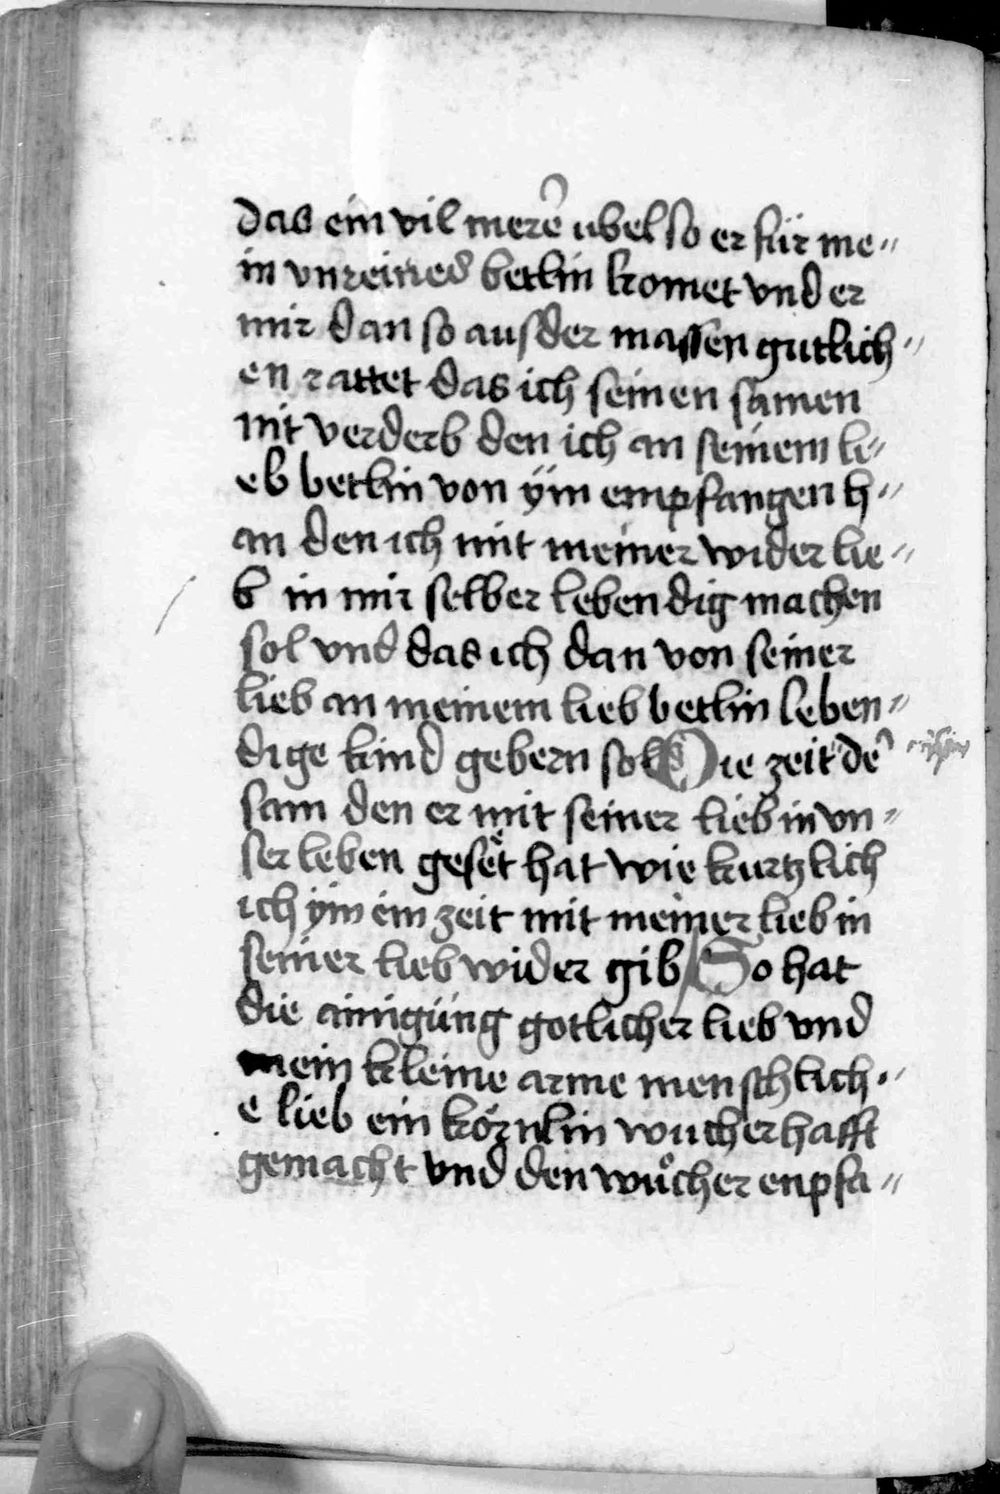 das ein vil merẽ ubel so er für me〃
in vnreined betlin komet vnd er
mir dan so aus der massen gutlich〃
en rattet das ich seinen samen
nit verderb den ich an seinem li〃
eb betlin von ÿm empfangen h〃
an den ich mit meiner wider lie〃
b in mir selber lebendig machen
sol vnd das ich dan von seiner
lieb an meinem lieb betlin leben〃
dige kind gebern sol Die zeit dẽ
sam den er mit seiner lieb in vn〃
ser leben geset hat wie kurtzlich
ich ÿm ein zeit mit meiner lieb in
seiner lieb wider gib So hat
die ainigüng gotlicher lieb vnd
mein kleine arme menschlich〃
e lieb ein körnlin wucherhafft
gemacht vnd den wůcher enpfa〃